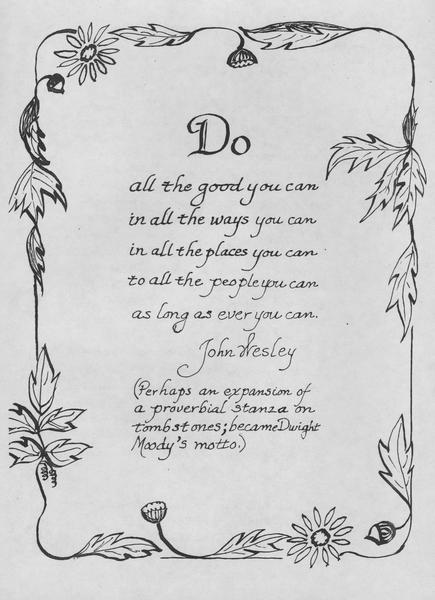 Do
all the good you can
in all the ways you can
in all the places you can
to all the people you can
as long as ever you can.
John Wesley
(Perhaps an expansion of
a proverbial stanza on
tombstones; became Dwight
Moody's motto.)